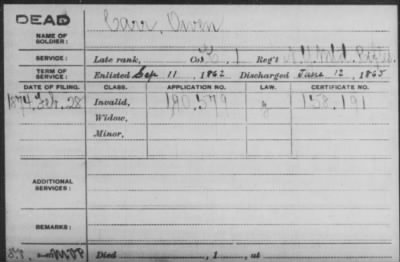 DEAD
Carr, Owen
NAME OF SOLDIER:
SERVICE: Late rank, Co. 1 Reg't
TERM OF SERVICE: Enlisted Sep 11, 1862 Discharged June 12, 1865
DATE OF FILING. CLASS. APPLICATION NO. LAW. CERTIFICATE NO.
1874, Feb. 28 Invalid, 190.579 g 158.191
Widow,
Minor,
ADDITIONAL SERVICES:
REMARKS:
Died , 1 , at